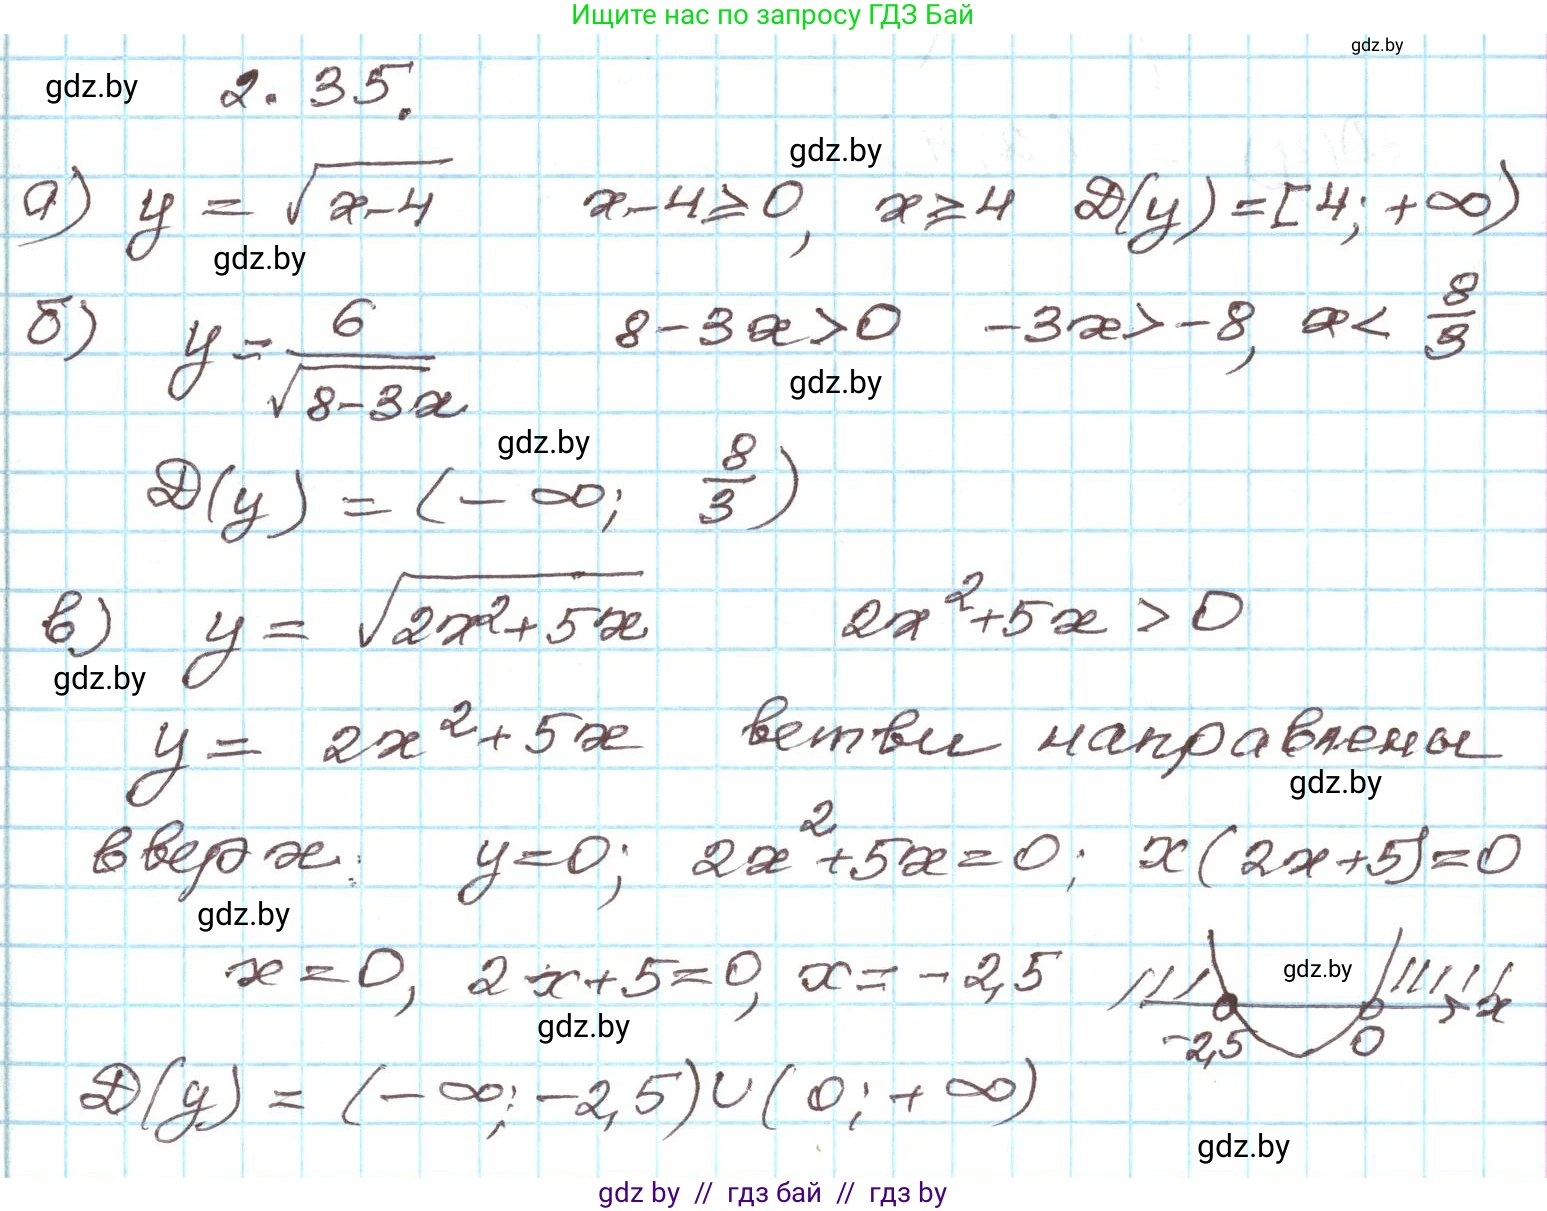 Ищите нас по запросу ГДЗ Бай
gdz.by
gdz.by 2.35.
gdz.by
а) y = √(x-4) x-4≥0, x≥4 D(y)=[4; +∞)
gdz.by
б) y = 6/√(8-3x) 8-3x>0 -3x>-8, x< 8/3
gdz.by
gdz.by
D(y) = (-∞; 8/3)
в) y = √(2x²+5x) 2x²+5x > 0
gdz.by
y = 2x²+5x ветви направлены
gdz.by
вверх: y=0; 2x²+5x=0; x(2x+5)=0
gdz.by
x=0, 2x+5=0, x=-2,5
gdz.by
x
gdz.by
-2,5 0
D(y) = (-∞; -2,5)∪(0; +∞)
gdz.by
gdz by // гдз бай // гдз by